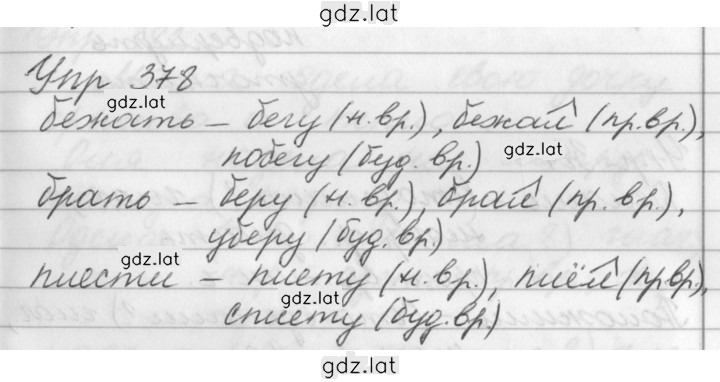 gdz.lat
Упр 378
gdz.lat
бежать – бегу (н.вр.), бежал (пр.вр.),
gdz.lat
побегу (буд. вр.)
брать – беру (н. вр.), брал (пр. вр.),
уберу (буд. вр.)
gdz.lat
плести – плету (н. вр.), плёл (пр.вр.),
gdz.lat
сплету (буд. вр.)
gdz.lat